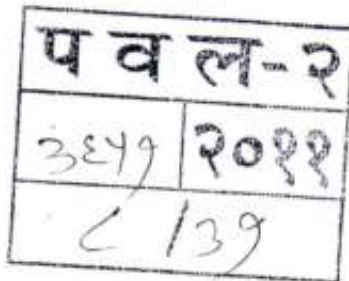 प व ल-२
३६५१ २०११
८ / ३१